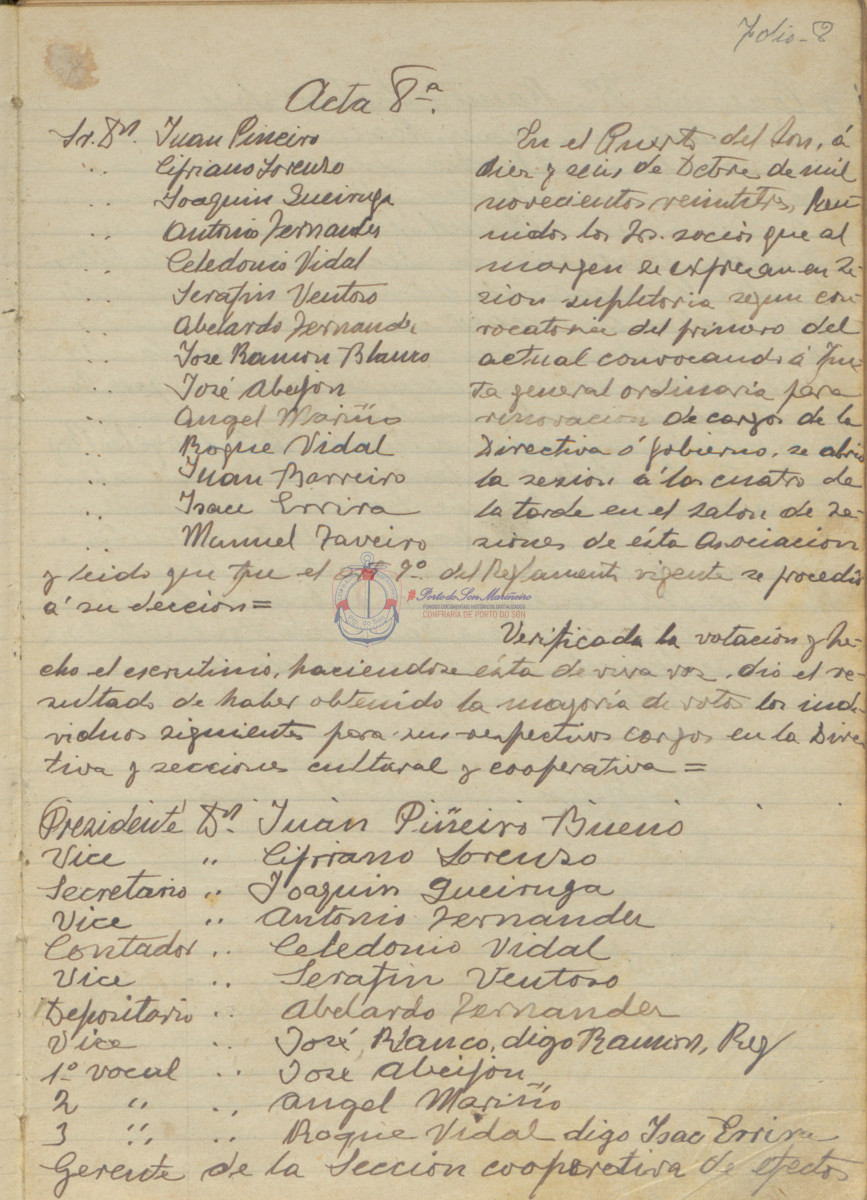 Folio-8
Acta 8ª.
Sr. Dn. Juan Pineiro
" Cipriano Lorenzo
" Joaquin Queiruga
" Antonio Fernandez
" Celedonio Vidal
" Serafin Ventoso
" Abelardo Fernandez
" Jose Ramon Blanco
" José Abeijon
" Angel Mariño
" Roque Vidal
" Juan Barreiro
" Isacc Errira
" Manuel Taveiro
En el Puerto del Son, á
diez y seis de Octbre de mil
novecientos veintitres, Reu-
nidos los Srs. socios que al
margen se expresan en se-
zion supletoria segun con-
vocatoria del primero del
actual convocando á Jun-
ta general ordinaria para
renovacion de cargos de la
Directiva ó gobierno, se abrio
la sezion á las cuatro de
la tarde en el salon de se-
ziones de ésta Asociacion
y leido que fue el art 9º. del Reglamento vigente se procedió
á su eleccion=
#Porto do Son Mariñeiro
FONDOS DOCUMENTAIS HISTÓRICOS DIXITALIZADOS
CONFRARÍA DE PORTO DO SON
Verificada la votación y he-
cho el escrutinio, haciendose ésta de viva voz, dió el re-
sultado de haber obtenido la mayoría de votos los indi-
viduos siguientes para sus respectivos cargos en la Direc-
tiva y secciones cultural y cooperativa =
Presidente Dn. Juán Piñeiro Bueno
Vice " Cipriano Lorenzo
Secretario " Joaquin Queiruga
Vice " Antonio Fernandez
Contador " Celedonio Vidal
Vice " Serafin Ventoso
Depositario " Abelardo Fernandez
Vice " José Blanco, digo Ramon, Rey
1º vocal " José Abeijon
2 " " Angel Mariño
3 " " Roque Vidal digo Isac Errira
Gerente de la Seccion cooperativa de efectos